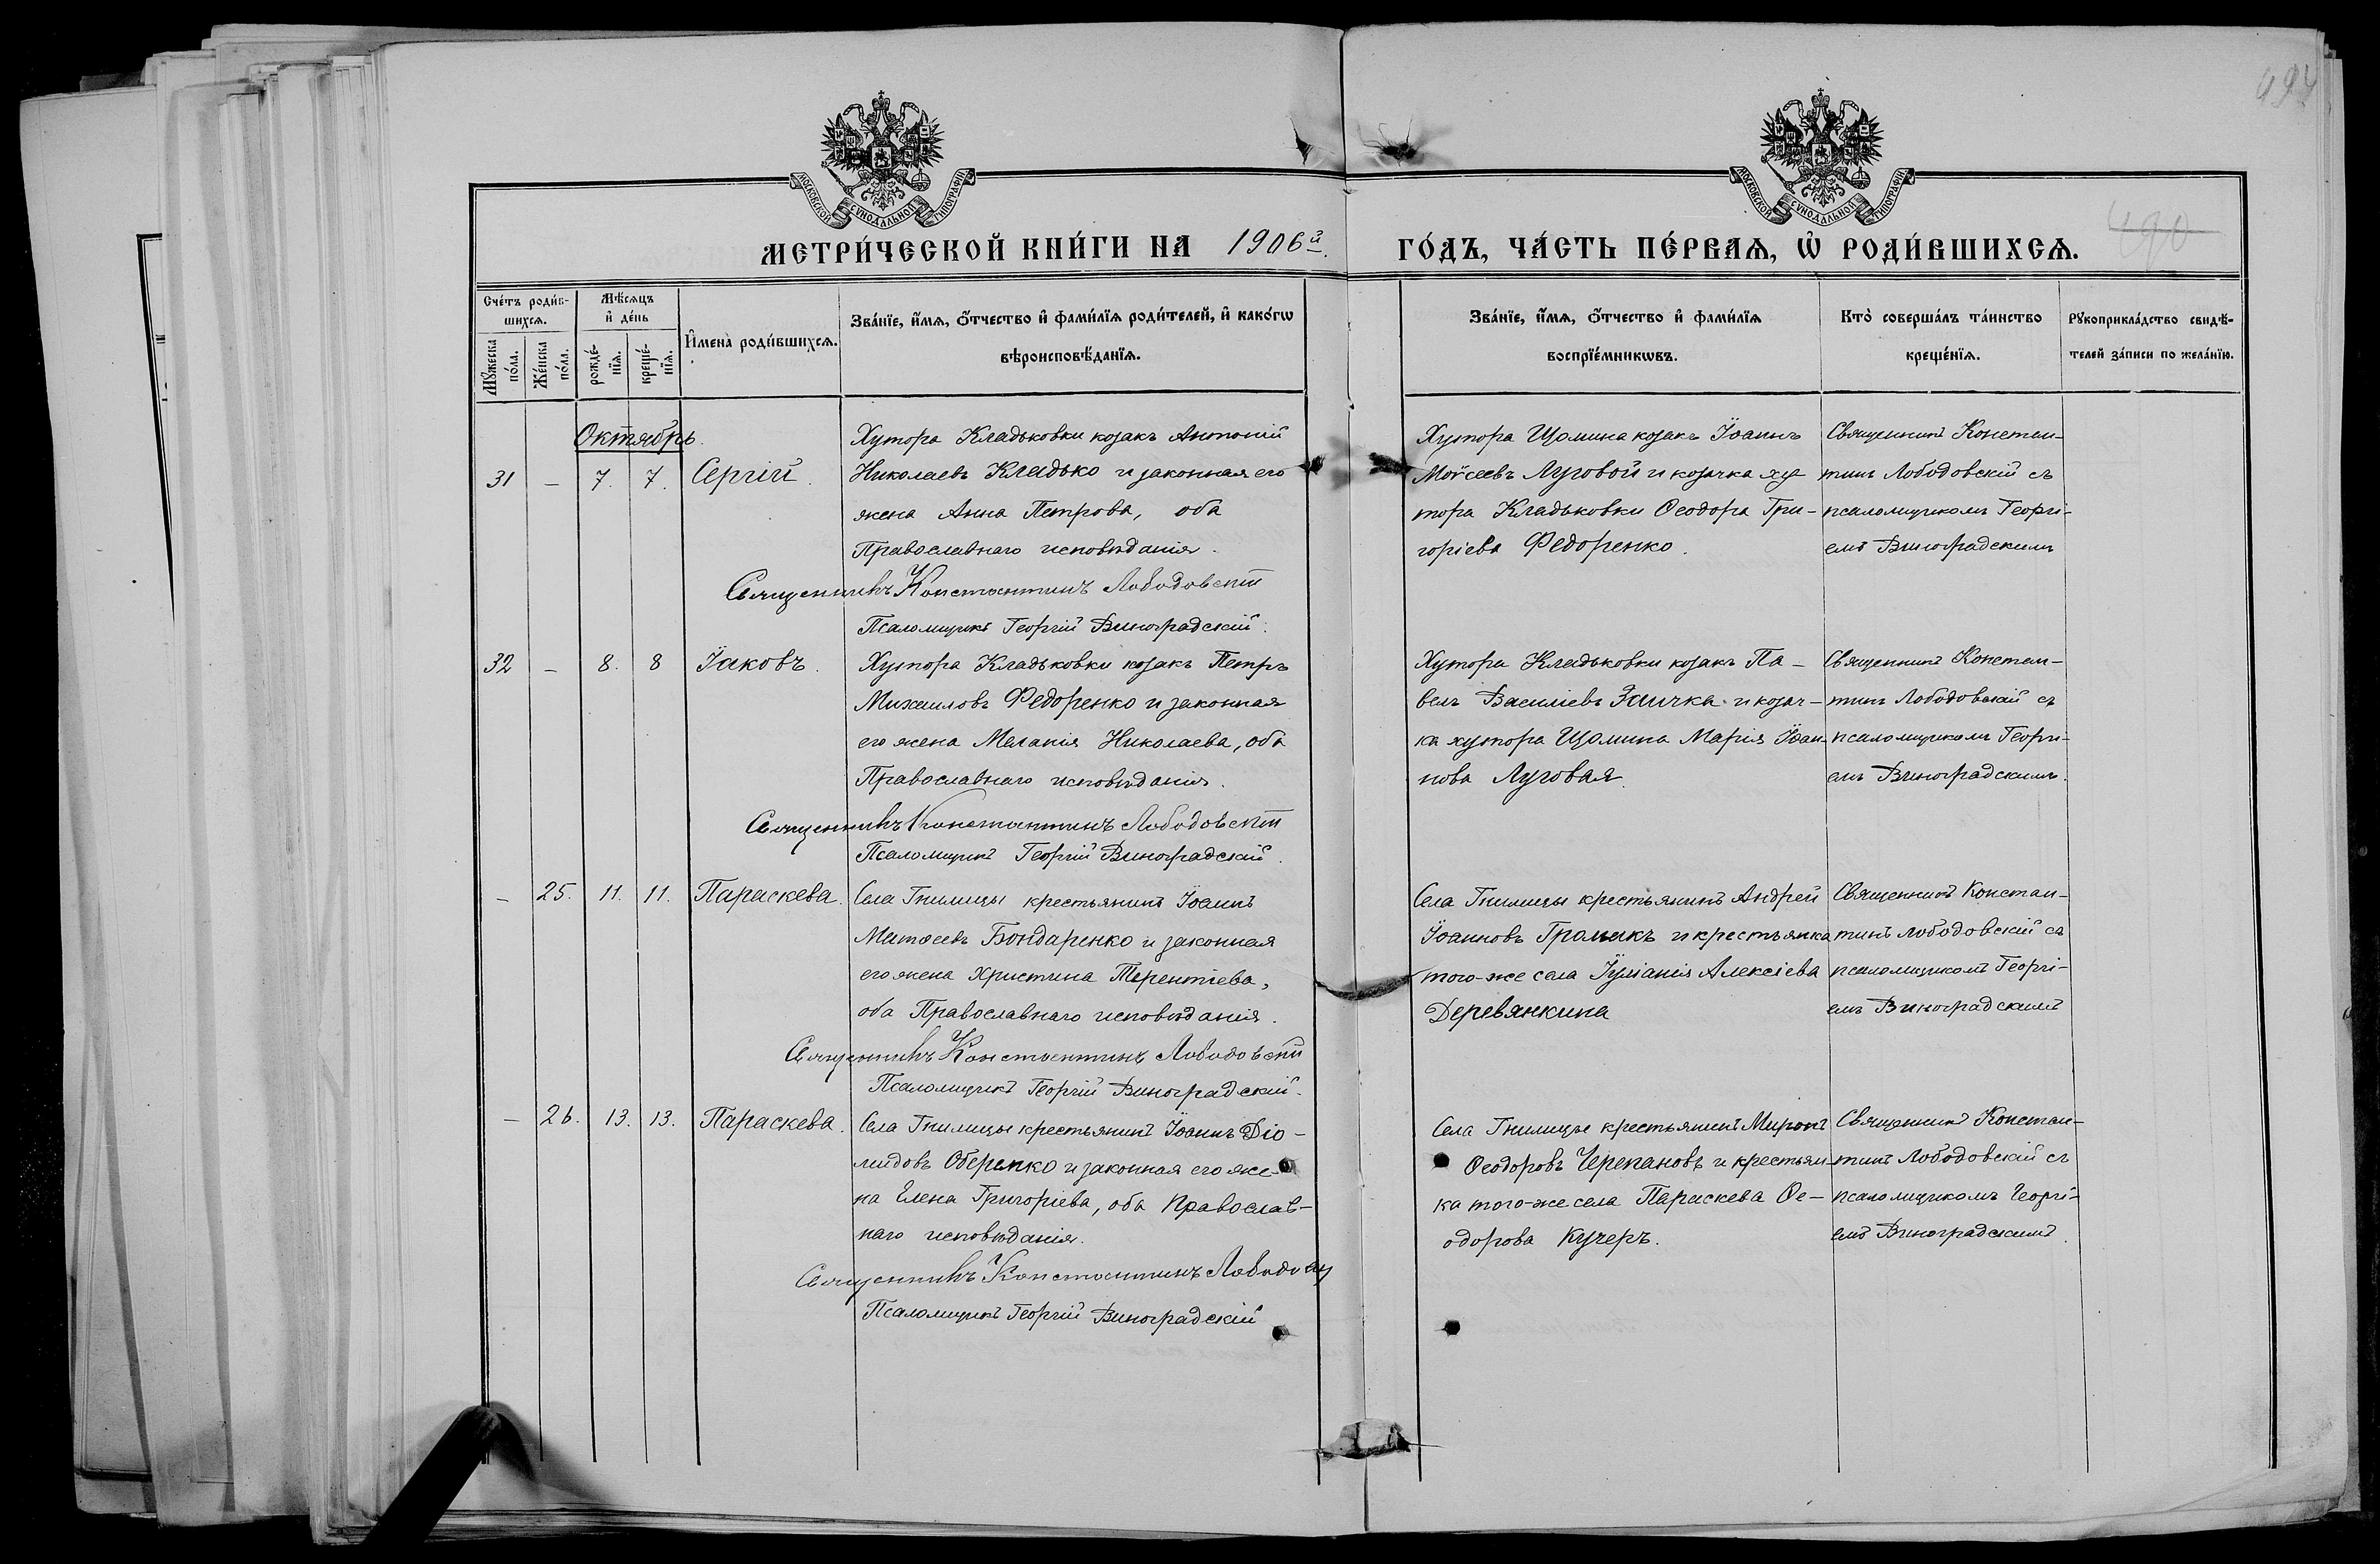 494
МОСКОВСКОЙ СУНОДАЛЬНОЙ ТИПОГРАФІИ
МОСКОВСКОЙ СУНОДАЛЬНОЙ ТИПОГРАФІИ
490
МЕТРИ́ЧЕСКОЙ КНИ́ГИ НА 1906й.
ГО́ДЪ, ЧА́СТЬ ПЕ́РВАѦ, Ѡ҆ РОДИ́ВШИХСѦ.
Сче́тъ роди́в-
шихсѧ.
Мꙋ́жеска по́ла.
Же́нска по́ла.
Мѣ́сѧцъ
и҆ де́нь
рожде́-нїѧ.
креще́-нїѧ.
И҆мена̀ роди́вшихсѧ.
Зва́нїе, и҆́мѧ, ѻ҆́тчество и҆ фами́лїѧ роди́телей, и҆ како́гѡ
вѣроисповѣ́данїѧ.
Зва́нїе, и҆́мѧ, ѻ҆́тчество и҆ фами́лїѧ
воспрїе́мникѡвъ.
Кто̀ соверша́лъ та́инство
креще́нїѧ.
Рꙋкоприкла́дство свидѣ́-
телей за́писи по жела́нїю.
Октябрь.
31 – 7. 7. Сергій.
Хутора Кладьковки козакъ Антоній
Николаевъ Кладько и законная его
жена Анна Петрова, оба
Православнаго исповѣданія.
Священникъ Константинъ Лободовскій
Псаломщикъ Георгій Виноградскій.
Хутора Щомина козакъ Іоаннъ
Моѵсеевъ Луговой и козачка ху-
тора Кладьковки Ѳеодора Гри-
горіева Федоренко.
Священникъ Констан-
тинъ Лободовскій съ
псаломщикомъ Георгі-
емъ Виноградскимъ
32 – 8. 8 Іаковъ.
Хутора Кладьковки козакъ Петръ
Михаиловъ Федоренко и законная
его жена Меланія Николаева, оба
Православнаго исповѣданія.
Священникъ Константинъ Лободовскій
Псаломщикъ Георгій Виноградскій.
Хутора Кладьковки козакъ Па-
велъ Василіевъ Заичка и козач-
ка хутора Щомина Марія Іоан-
нова Луговая.
Священникъ Констан-
тинъ Лободовскій съ
псаломщикомъ Георгі-
емъ Виноградскимъ.
– 25. 11. 11. Параскева.
Села Гнилицы крестьянинъ Іоаннъ
Матѳеевъ Бондаренко и законная
его жена Христина Терентіева,
оба Православнаго исповѣданія.
Священникъ Константинъ Лободовскій
Псаломщикъ Георгій Виноградскій.
Села Гнилицы крестьянинъ Андрей
Іоанновъ и крестьянка
того-же села Іуліанія Алексіева
Деревянкина
Священникъ Констан-
тинъ Лободовскій съ
псаломщикомъ Георгі-
емъ Виноградскимъ
– 26. 13. 13. Параскева.
Села Гнилицы крестьянинъ Іоаннъ Діо-
мидовъ Оберемко и законная его же-
на Елена Григоріева, оба Православ-
наго исповѣданія.
Священникъ Константинъ
Псаломщикъ Георгій Виноградскій
Села Гнилицы крестьянинъ Миронъ
Ѳеодоровъ Черепановъ и крестьян-
ка того-же села Параскева Ѳе-
одорова Кучеръ.
Священникъ Констан-
тинъ Лободовскій съ
псаломщикомъ Георгі-
емъ Виноградскимъ.